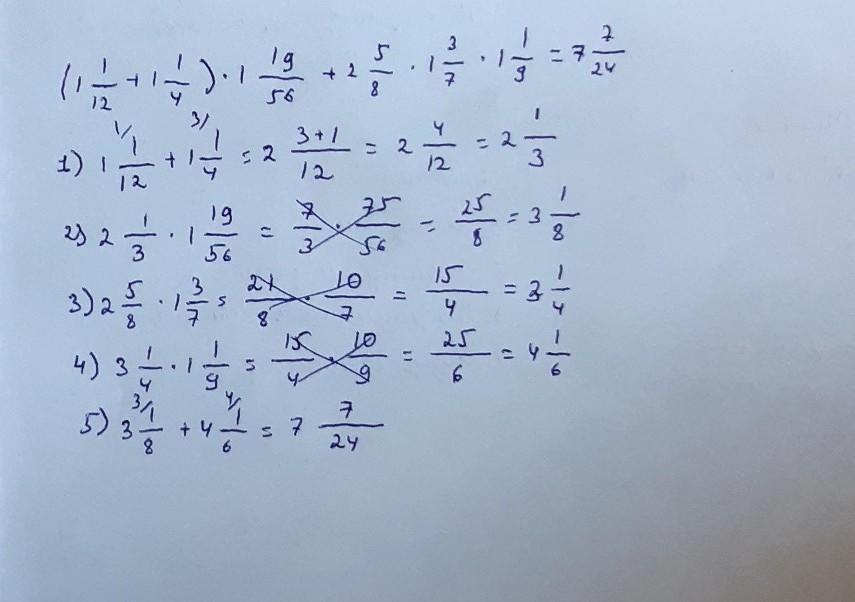 (1 1/12 + 1 1/4) · 1 19/56 + 2 5/8 · 1 3/7 · 1 1/9 = 7 7/24
1) 1 1/12 + 1 1/4 = 2 (3+1)/12 = 2 4/12 = 2 1/3
2) 2 1/3 · 1 19/56 = 7/3 · 75/56 = 25/8 = 3 1/8
3) 2 5/8 · 1 3/7 = 21/8 · 10/7 = 15/4 = 3 1/4
4) 3 1/4 · 1 1/9 = 15/4 · 10/9 = 25/6 = 4 1/6
5) 3 1/8 + 4 1/6 = 7 7/24